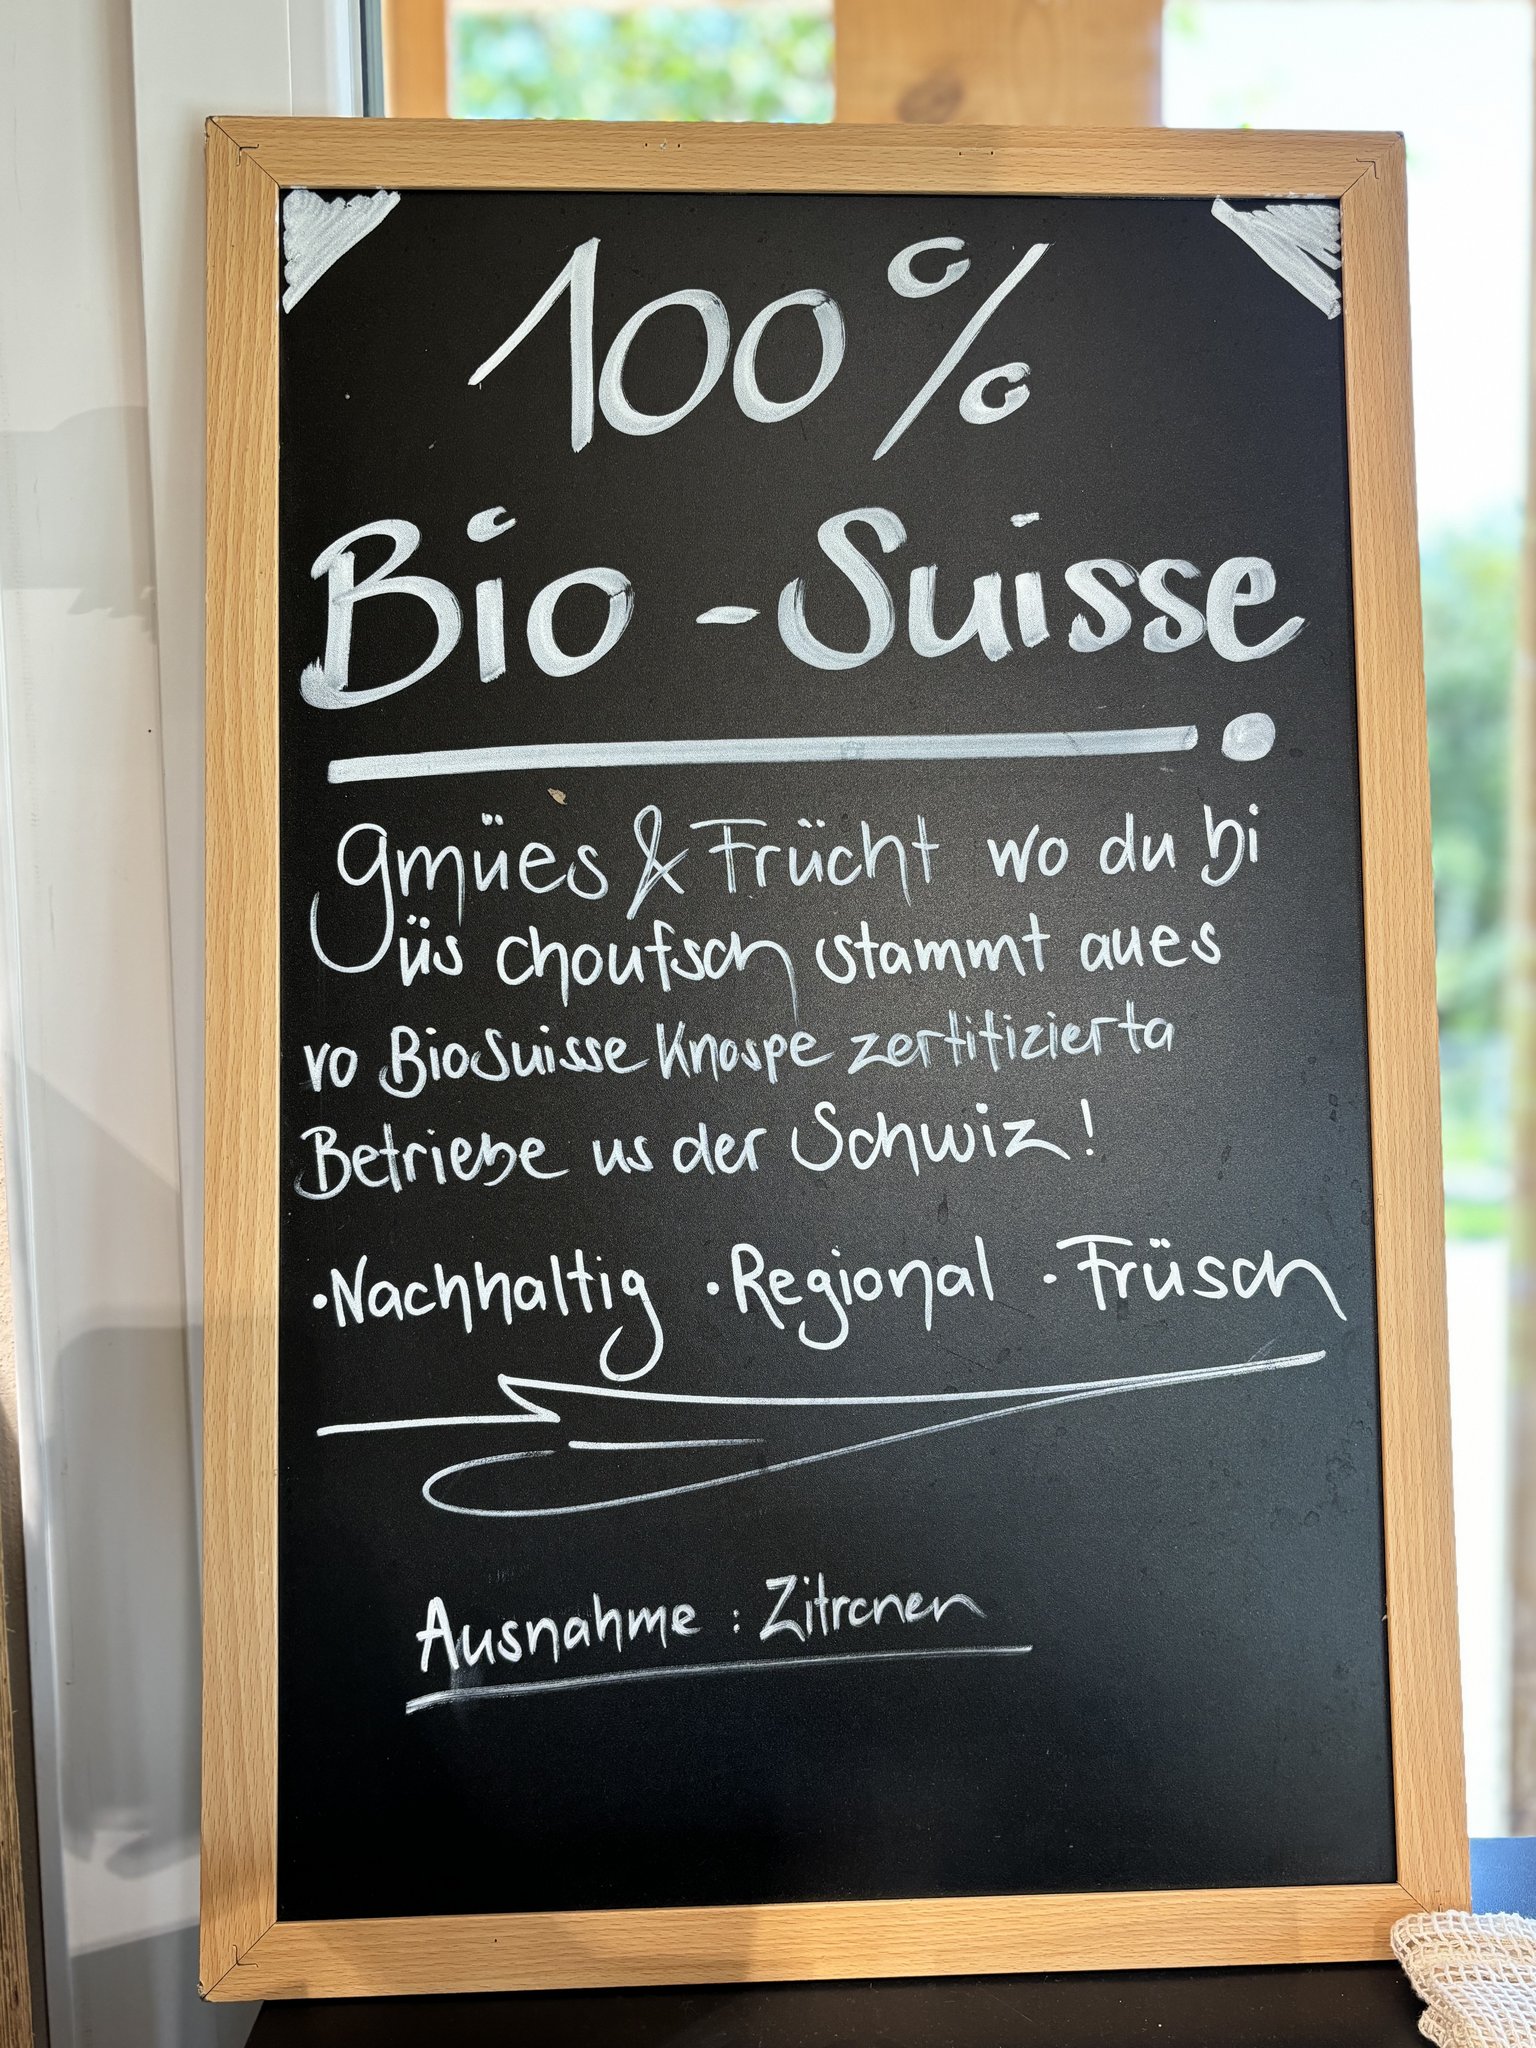 100%
Bio-Suisse
Gmües & Frücht wo du bi
üs choufsch stammt aues
vo BioSuisse Knospe zertifizierta
Betriebe us der Schwiz!
·Nachhaltig ·Regional ·Früsch
Ausnahme: Zitronen